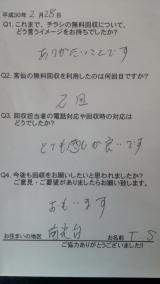 平成30年 2月28日
Q1. これまで、チラシの無料回収について、
どう言うイメージをお持ちでしたか?
ありがたいことです
Q2. 宮仙の無料回収を利用したのは何回目ですか?
2回
Q3. 回収担当者の電話対応や回収時の対応は
どうでしたか?
とても感じが良いです
Q4. 今後も回収をお願いしたいと思われましたか?
ご意見・ご要望がありましたらお願い致します。
おもいます
お住まいの地区 南光台 お名前 T S
ご協力ありがとうございました!!